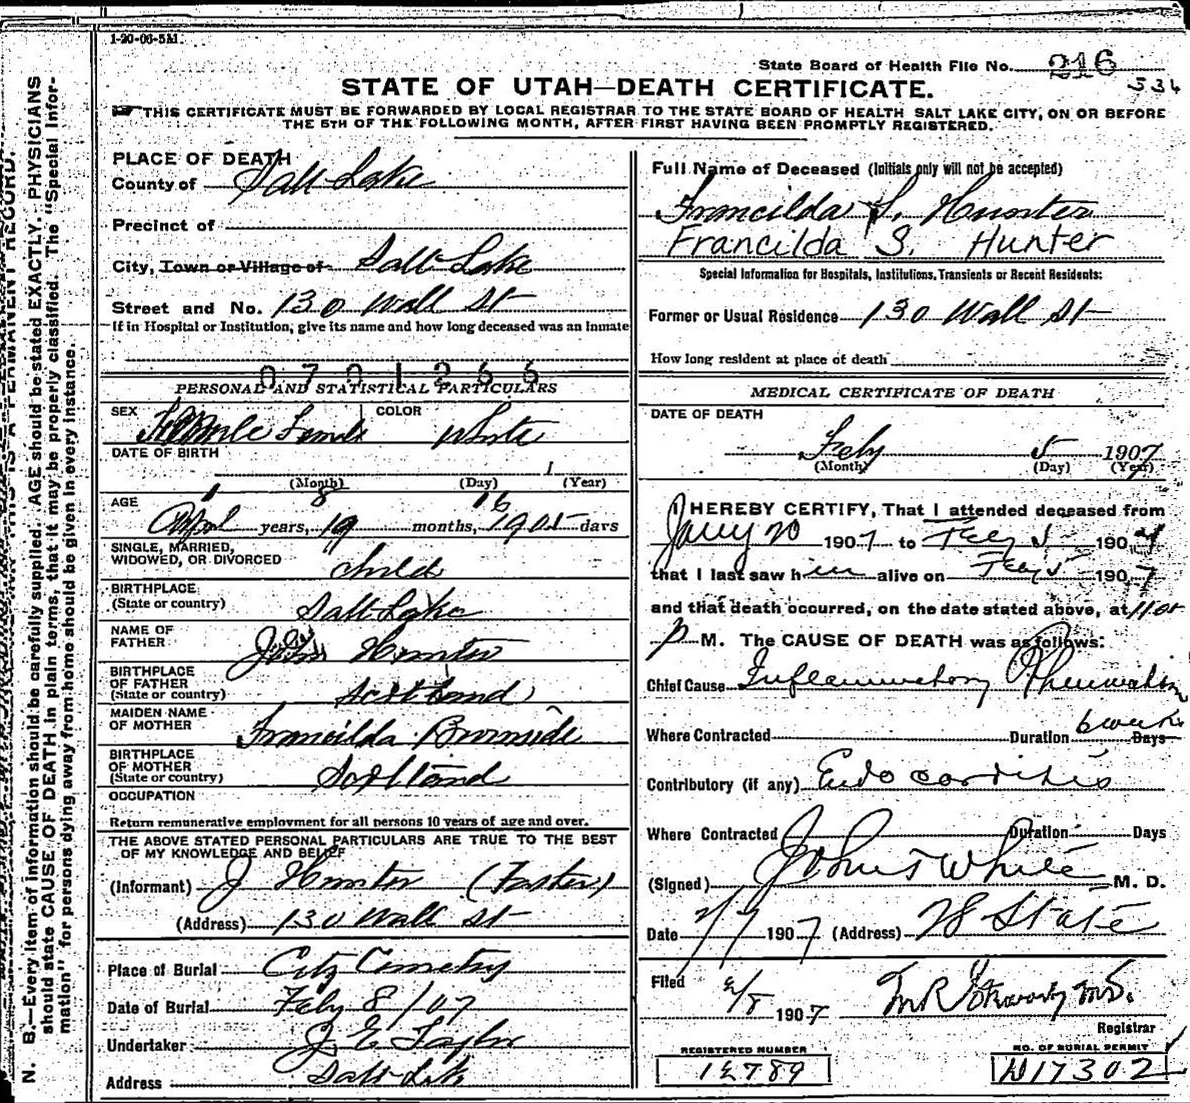 1-20-06-5M.
State Board of Health File No. 216
534
STATE OF UTAH—DEATH CERTIFICATE.
THIS CERTIFICATE MUST BE FORWARDED BY LOCAL REGISTRAR TO THE STATE BOARD OF HEALTH SALT LAKE CITY, ON OR BEFORE
THE 5TH OF THE FOLLOWING MONTH, AFTER FIRST HAVING BEEN PROMPTLY REGISTERED.
N. B.—Every item of information should be carefully supplied. AGE should be stated EXACTLY. PHYSICIANS
should state CAUSE OF DEATH in plain terms, that it may be properly classified. The "Special Infor-
mation" for persons dying away from home should be given in every instance.
PLACE OF DEATH
County of Salt Lake
Precinct of
City, Town or Village of Salt Lake
Street and No. 130 Wall St
If in Hospital or Institution, give its name and how long deceased was an inmate
0701266
PERSONAL AND STATISTICAL PARTICULARS
SEX Female COLOR White
DATE OF BIRTH
(Month) (Day) 1 (Year)
1 8 16
AGE April years, 19 months, 1905 days
SINGLE, MARRIED,
WIDOWED, OR DIVORCED child
BIRTHPLACE
(State or country) Salt Lake
NAME OF
FATHER John Hunter
BIRTHPLACE
OF FATHER
(State or country) Scotland
MAIDEN NAME
OF MOTHER Francilda Burnside
BIRTHPLACE
OF MOTHER
(State or country) Scotland
OCCUPATION
Return remunerative employment for all persons 10 years of age and over.
THE ABOVE STATED PERSONAL PARTICULARS ARE TRUE TO THE BEST
OF MY KNOWLEDGE AND BELIEF
(Informant) J Hunter (Father)
(Address) 130 Wall St
Place of Burial City Cemetry
Date of Burial Feby 8/07
Undertaker J E Taylor
Address Salt Lake
Full Name of Deceased (Initials only will not be accepted)
Francilda S. Hunter
Francilda S. Hunter
Special Information for Hospitals, Institutions, Transients or Recent Residents:
Former or Usual Residence 130 Wall St
How long resident at place of death
MEDICAL CERTIFICATE OF DEATH
DATE OF DEATH
Feby 5 1907
(Month) (Day) (Year)
I HEREBY CERTIFY, That I attended deceased from
Jany 20 1907 to Feby 5 1907
that I last saw h alive on Feby 5 1907
and that death occurred, on the date stated above, at 1105
p M. The CAUSE OF DEATH was as follows:
Chief Cause Inflammatory Rheumatism
Where Contracted Duration 6 weeks Days
Contributory (if any) Endocarditis
Where Contracted Duration Days
(Signed) John S White M. D.
Date 2/7 1907 (Address) 78 State
Filed 2/8 1907 M.D.
Registrar
REGISTERED NUMBER
NO. OF BURIAL PERMIT
N17302